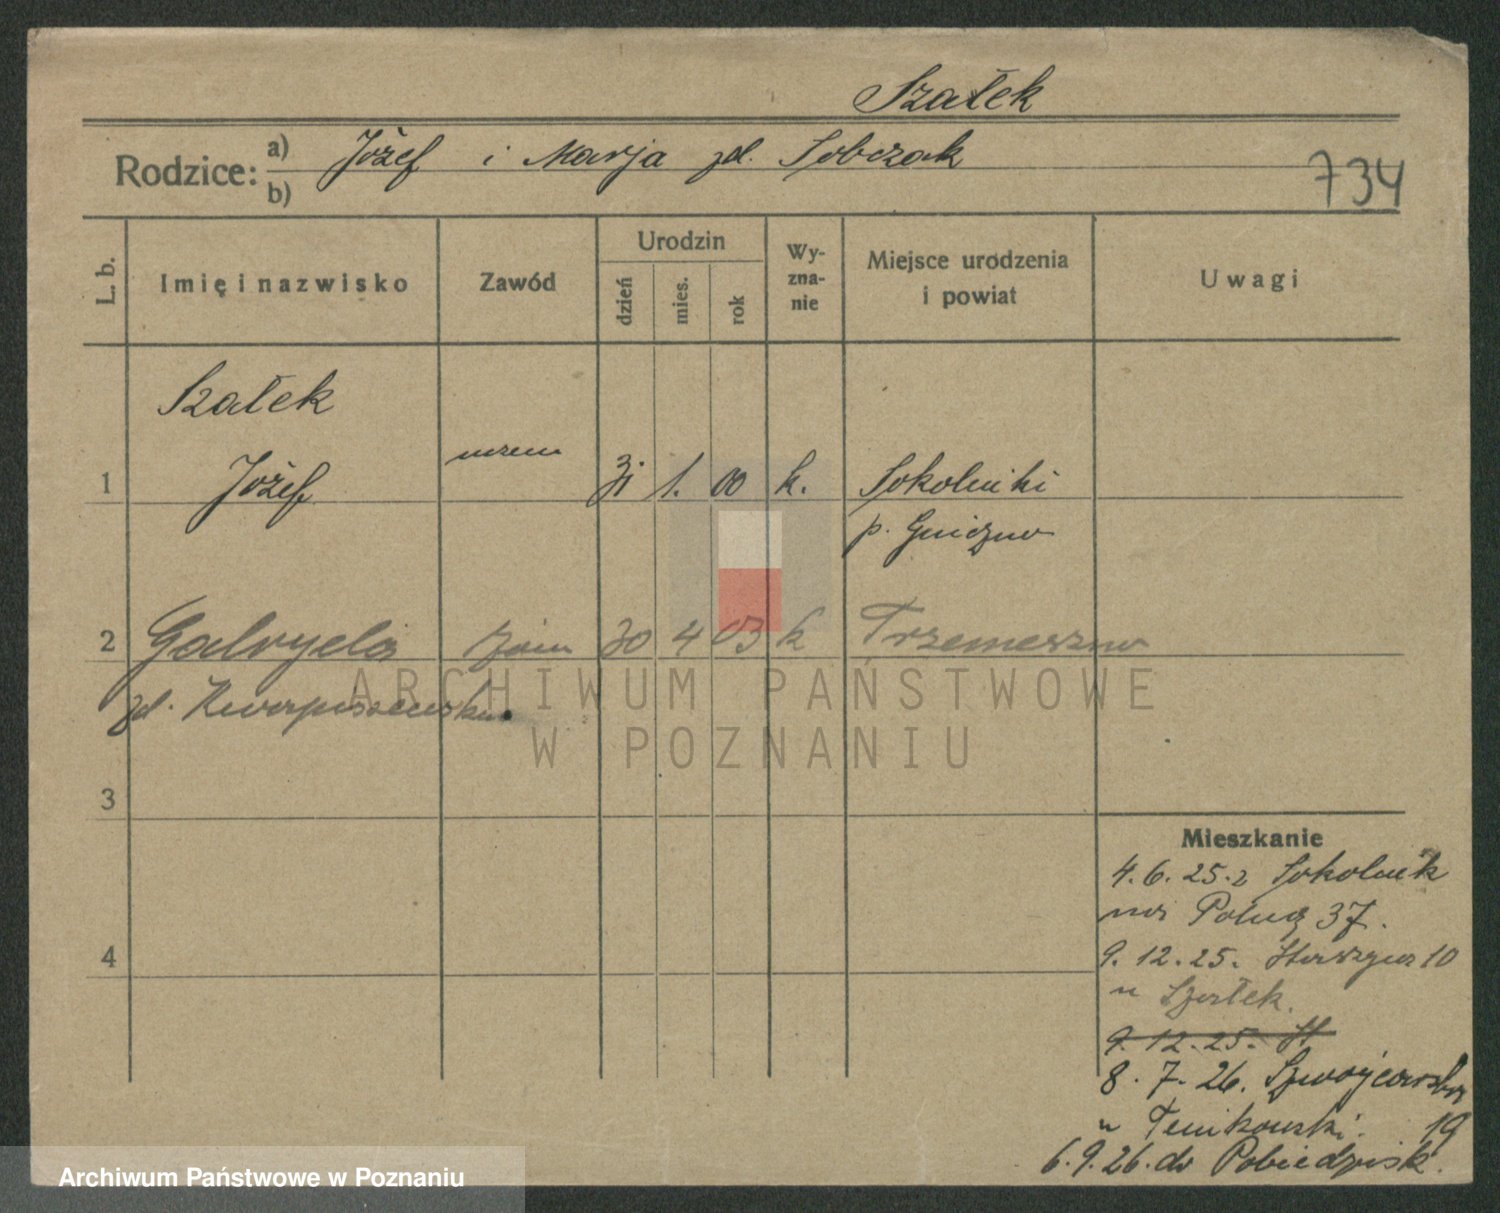 Szałek
Rodzice: a) Józef i Marja zd. Sobczak
b)
734
L. b.
Imię i nazwisko
Zawód
Urodzin
dzień
mies.
rok
Wy-
zna-
nie
Miejsce urodzenia
i powiat
Uwagi
Szałek
1 Józef 31 1. 00 k. Sokolniki
p. Gniezno
2 Gabryela żona 30 4 03 k Trzemeszno
zd.
ARCHIWUM PAŃSTWOWE
W POZNANIU
3
Mieszkanie
4.6.25. z Sokolnik
37.
4
9.12.25. 10
u Szałek.
9.12.25. St
8.7.26.
u 19
6.9.26. do Pobiedzisk.
Archiwum Państwowe w Poznaniu